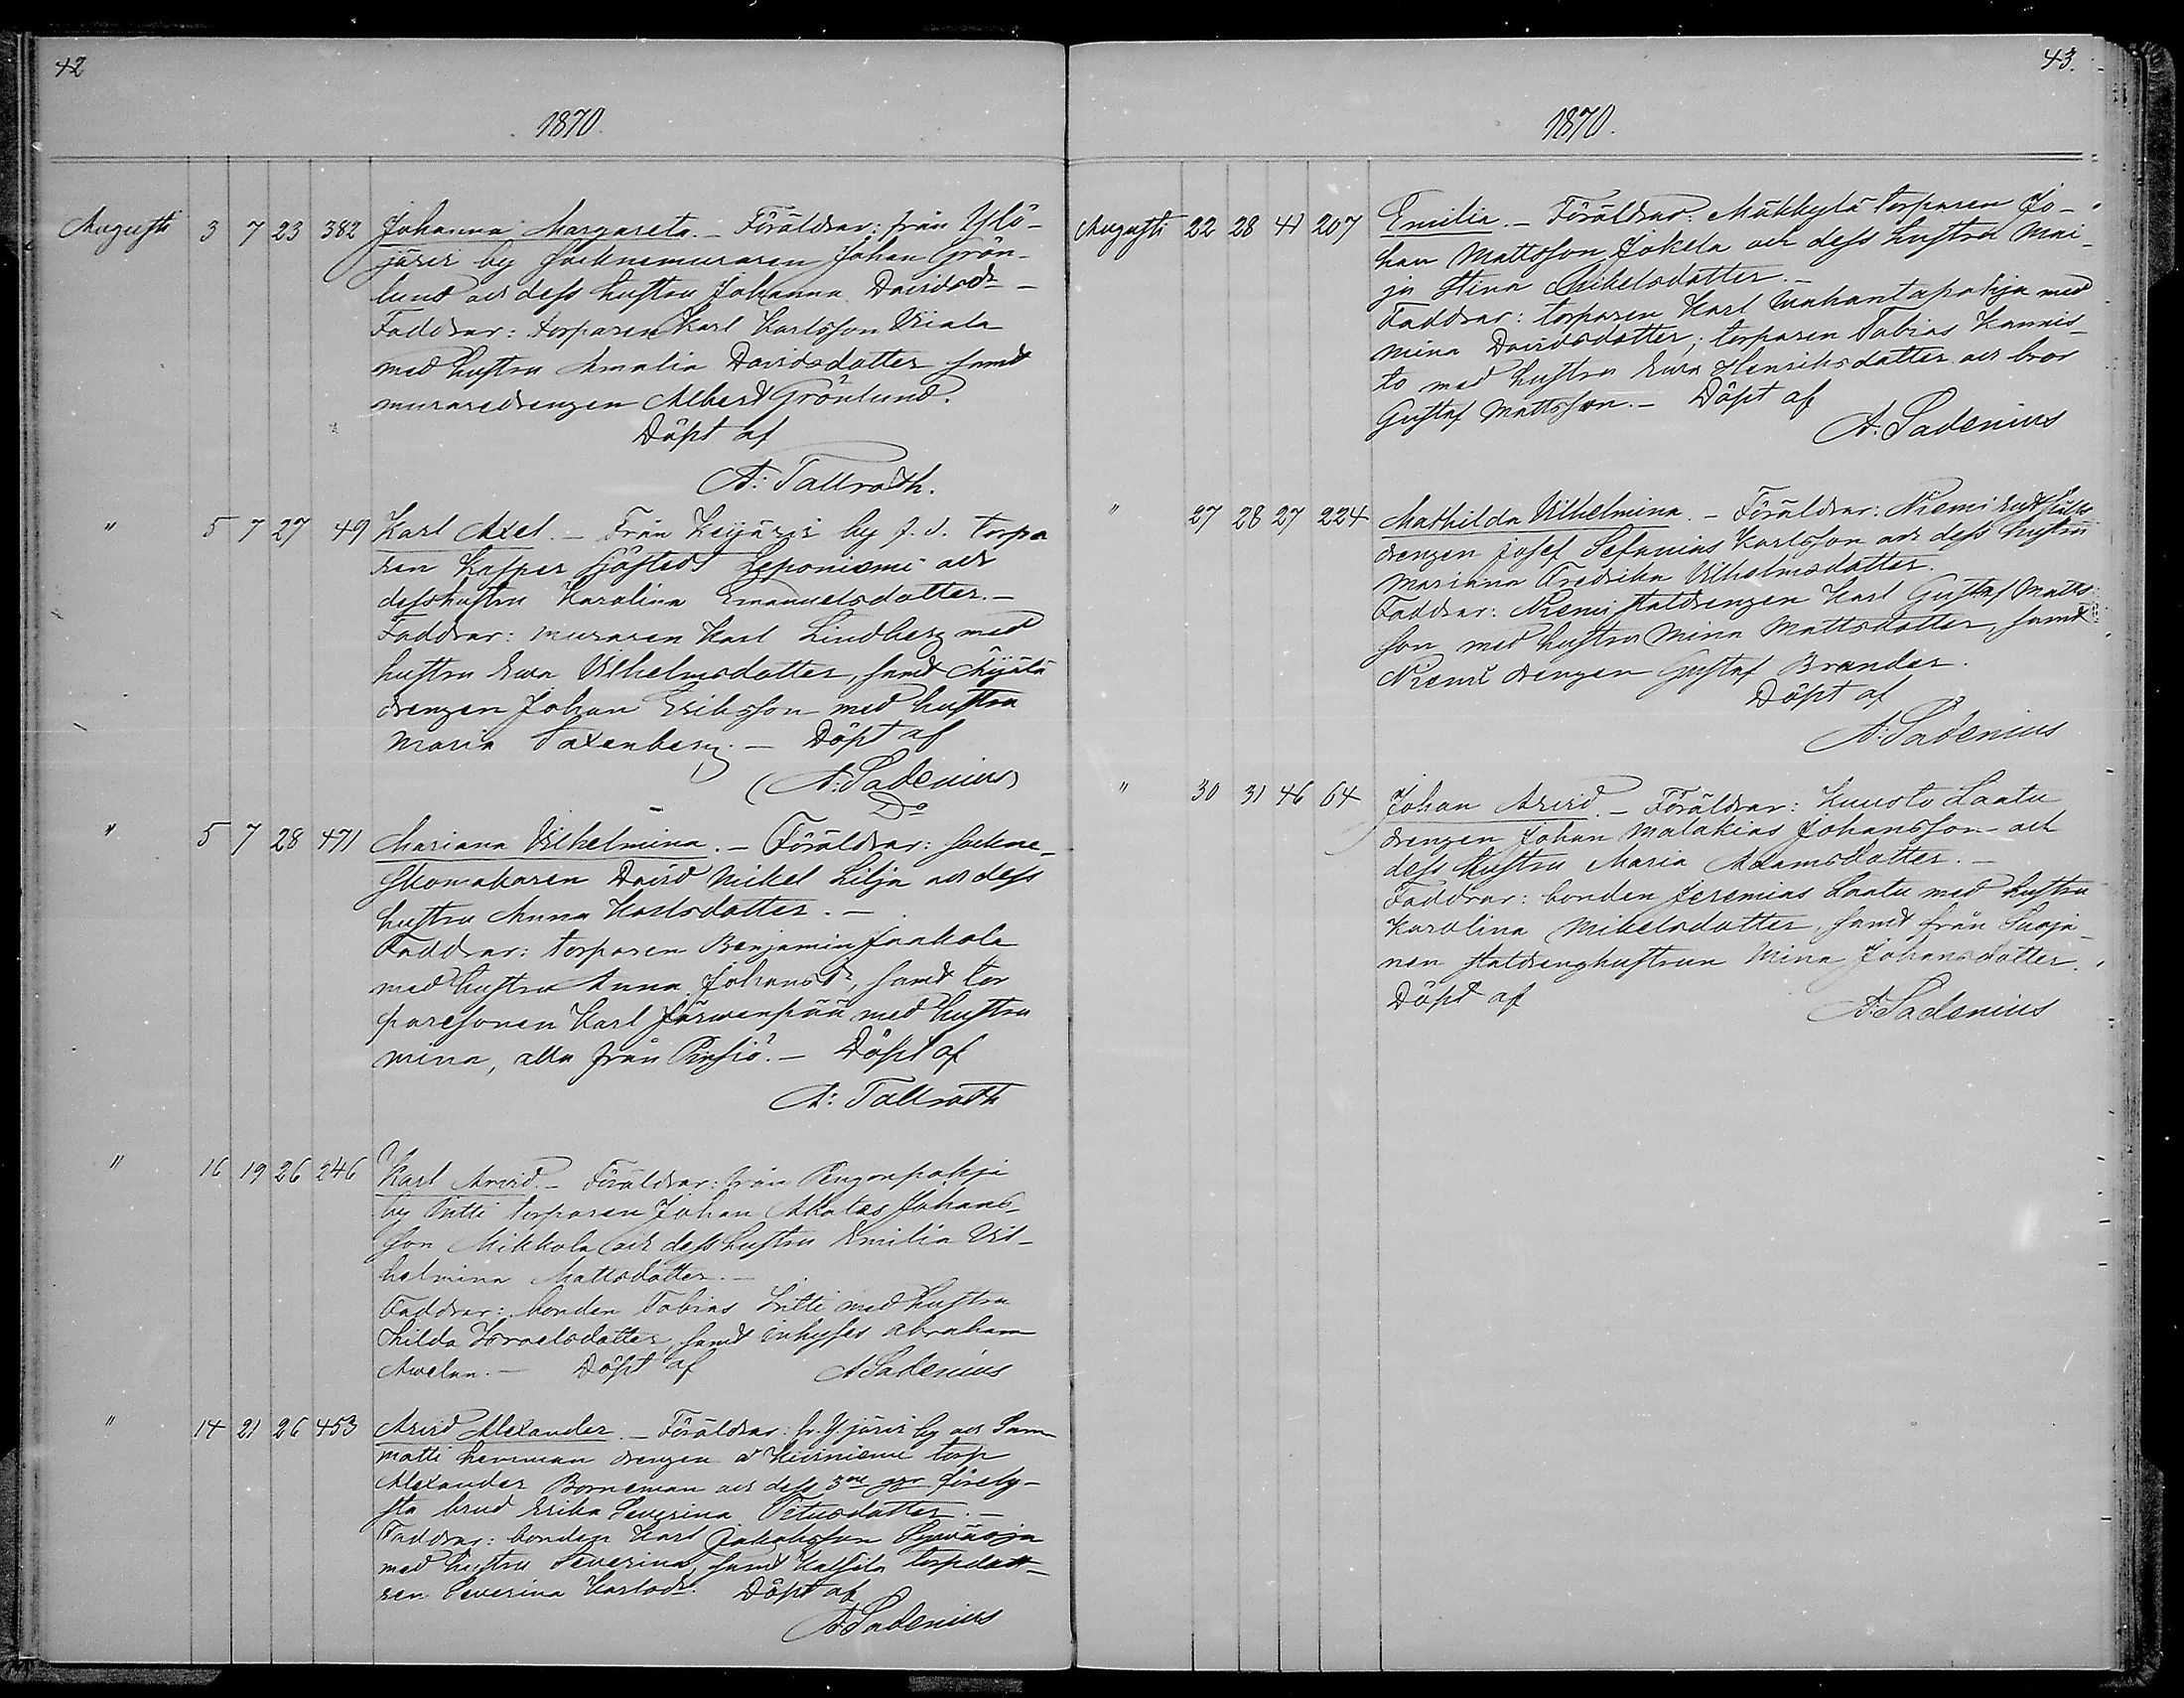 42
1870.
Augusti 3 7 23 382 Johanna Margareta. - Föräldrar: från Ylö-
järvi by socknemuraren Johan Grön-
lund och dess hustru Johanna Davidsdr -
Faddrar: torparen Karl Karlsson Viiala
med hustru Amalia Davidsdotter samt
muraredrengen Albert Grönlund.
Döpt af
A: Tallroth.
" 5 7 27 49 Karl Axel. - Från Keijärvi by f. d. torpa
ren Kasper Sjöstedt Leponiemi och
dess hustru Karolina Emanuelsdotter. -
Faddrar: muraren Karl Lindberg med
hustru Eva Vilhelmsdotter, samt
drengen Johan Eriksson med hustru
Maria Saxenberg. - Döpt af
A: Sadenius
Do
" 5 7 28 471 Mariana Vilhelmina. - Föräldrar: sockne-
skomakaren David Mikel Lilja och dess
hustru Anna Karlsdotter. -
Faddrar: torparen Benjamin Jaakola
med hustru Anna Johansdr, samt tor
paresonen Karl Järvenpää med hustru
Mina, alla från Pinsiö. - Döpt af
A: Tallroth
" 16 19 26 246 Karl Arvid. - Föräldrar: från Pengonpohja
by torparen Johan Johans-
son Mikkola och dess hustru Emilia Vil-
helmina Mattsdotter. -
Faddrar: bonden Tobias med hustru
Hilda Israelsdotter, samt inhyses Abraham
Avelan. - Döpt af A Sadenius
" 14 21 26 453 Arvid Alexander. - Föräldrar: fr. Y. järvi by och Sam
matti hemman drengen å torp
Alexander Borneman och dess 3ne ggr förely-
sta brud Erika Severina Titusdotter. -
Faddrar: bonden Karl Jakobsson
med hustru Severina, samt torpdott-
ren Severina Karlsdr. Döpt af
A: Sadenius
43.
1870.
Augusti 22 28 41 207 Emilia. - Föräldrar: Mäkkylä torparen Jo-
han Mattsson Jokela och dess hustru Mai-
ja Stina Mikelsdotter. -
Faddrar: torparen Karl med
Mina Davidsdotter; torparen Tobias Kannis-
to med hustru Eva Henriksdotter och bror
Gustaf Mattsson. - Döpt af
A. Sadenius
" 27 28 27 224 Mathilda Vilhelmina. - Föräldrar: Niemi
drengen Josef Sefanias Karlsson och dess hustru
Mariana Fredrika Vilhelmsdotter.
Faddrar: Niemi statdrengen Karl Gustaf Matts-
son med hustru Mina Mattsdotter, samt
Niemi drengen Gustaf Brander.
Döpt af
A: Sadenius
" 30 31 46 64 Johan Arvid. - Föräldrar: Kuusto Laatu
drengen Johan Malakias Johansson och
dess hustru Maria Adamsdotter. -
Faddrar: bonden Jeremias Laatu med hustru
Karolina Mikelsdotter, samt från Suoja-
nen statdrenghustrun Mina Johansdotter.
Döpt af A: Sadenius